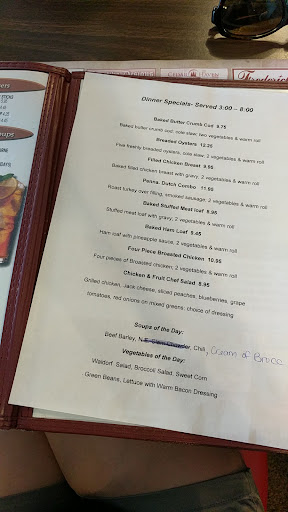 Dinner Specials- Served 3:00 – 8:00
Baked Butter Crumb Cod 9.75
Baked butter crumb cod, cole slaw, two vegetables & warm roll
Breaded Oysters 12.25
Five freshly breaded oysters, cole slaw, 2 vegetables & warm roll
Filled Chicken Breast 9.65
Baked filled chicken breast with gravy, 2 vegetables & warm roll
Penna. Dutch Combo 11.60
Roast turkey over filling, smoked sausage, 2 vegetables & warm roll
Baked Stuffed Meat loaf 8.95
Stuffed meat loaf with gravy, 2 vegetables & warm roll
Baked Ham Loaf 9.45
Ham loaf with pineapple sauce, 2 vegetables & warm roll
Four Piece Broasted Chicken 10.95
Four pieces of Broasted chicken, 2 vegetables & warm roll
Chicken & Fruit Chef Salad 8.95
Grilled chicken, Jack cheese, sliced peaches, blueberries, grape
tomatoes, red onions on mixed greens, choice of dressing
Soups of the Day:
Beef Barley, N.E. Clam Chowder, Chili, Cream of Brocc
Vegetables of the Day:
Waldorf Salad, Broccoli Salad, Sweet Corn
Green Beans, Lettuce with Warm Bacon Dressing